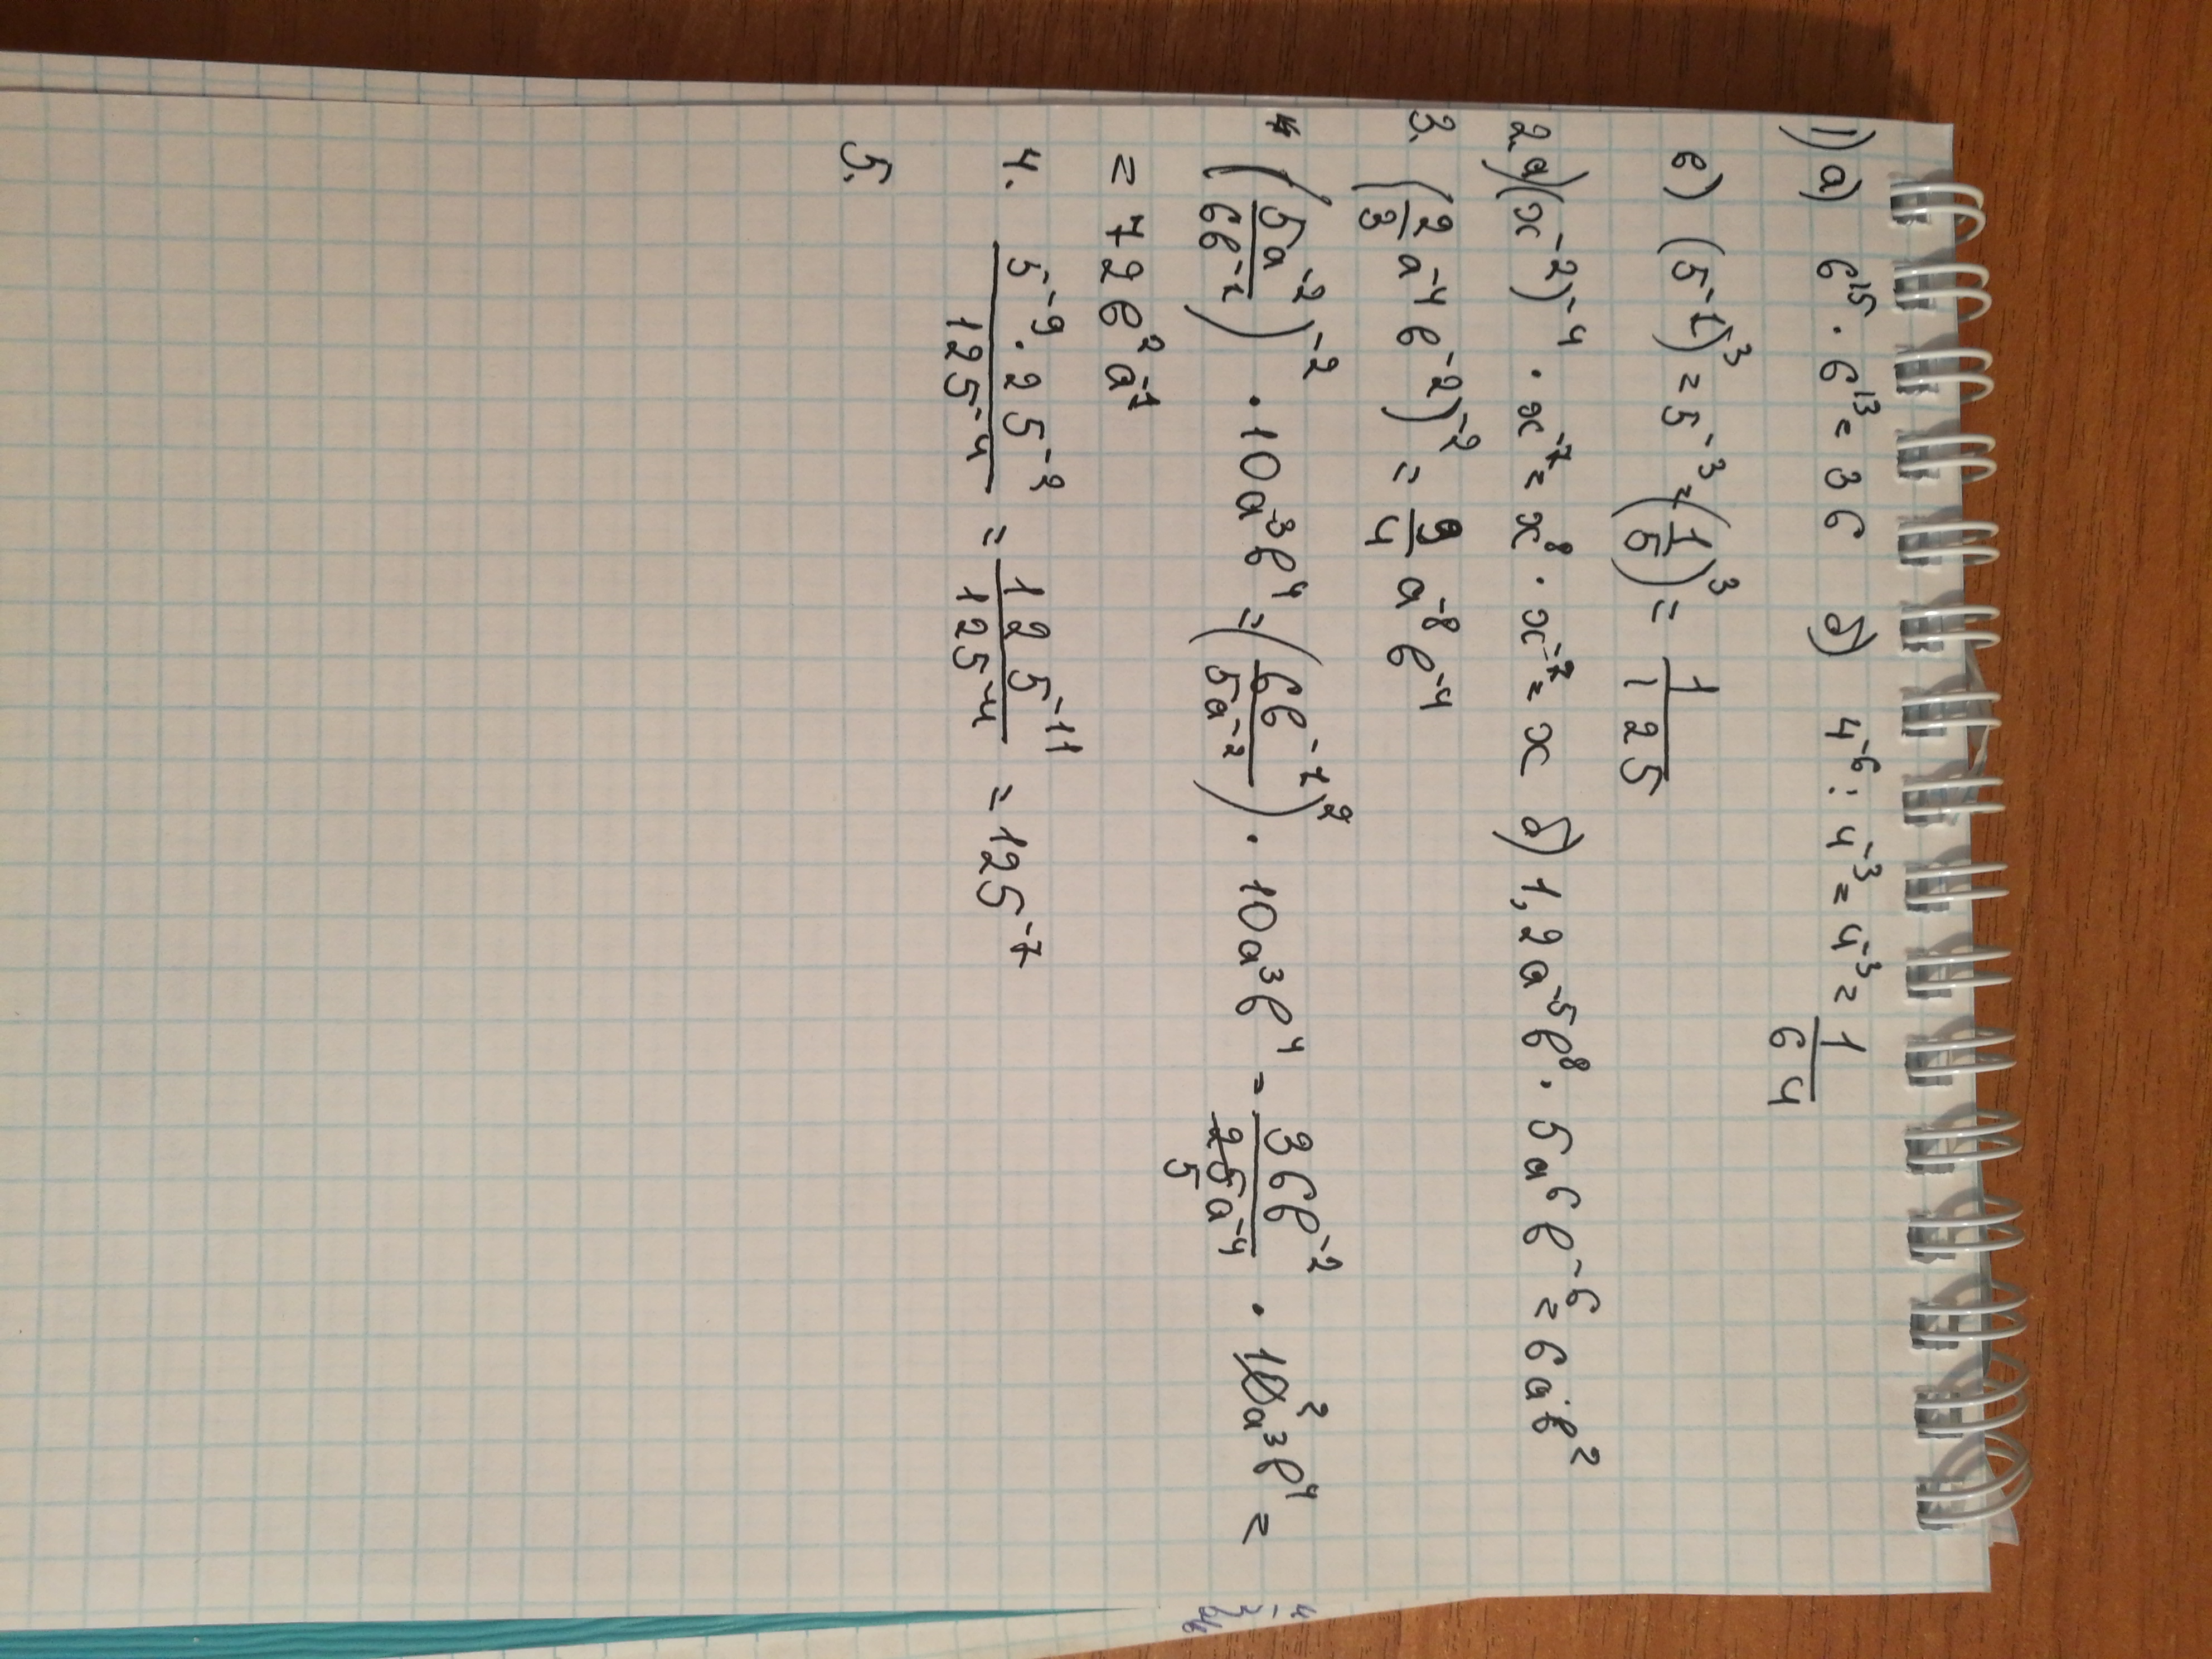 1) а) 6¹⁵ · 6¹³ = 36 б) 4⁻⁶ : 4⁻³ = 4⁻³ = 1/64
в) (5⁻¹)³ = 5⁻³ = (1/5)³ = 1/125
2. а) (x⁻²)⁻⁴ · x⁻⁷ = x⁸ · x⁻⁷ = x б) 1,2a⁻⁵b⁸ · 5a⁶b⁻⁶ = 6a · b²
3. (2/3 a⁻⁴b⁻²)⁻² = 9/4 a⁻⁸b⁻⁴
(5a⁻²/6b⁻¹)⁻² · 10a³b⁴ = (6b⁻¹/5a⁻²)² · 10a³b⁴ = 36b⁻²/25a⁻⁴ 5 · 10² a³b⁴ =
= 72b²a⁻¹
4. 5⁻⁹ · 25⁻²/125⁻⁴ = 125⁻¹¹/125⁻⁴ = 125⁻⁷
5.